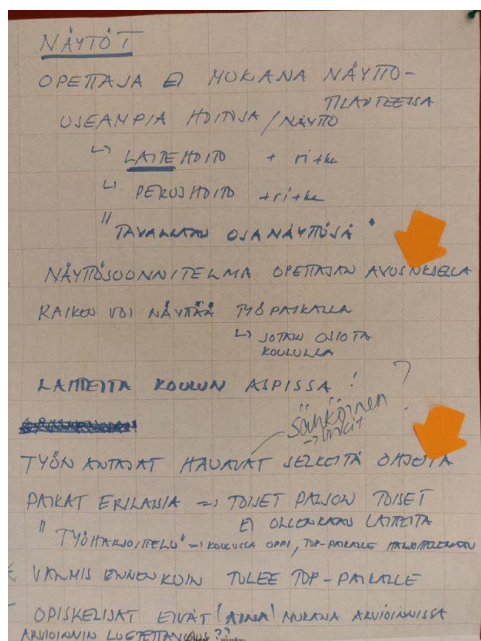 NÄYTÖT
OPETTAJA EI MUKANA NÄYTTÖ-
TILANTEESSA
USEAMPIA HOITOJA / NÄYTTÖ
↳ LAITEHOITO + ritke
↳ PERUSHOITO + ritke
"TAVALLAAN OSANÄYTTÖJÄ"
NÄYTTÖSUUNNITELMA OPETTAJAN AVUSTUKSELLA
KAIKEN VOI NÄYTTÄÄ TYÖPAIKALLA
↳ JOTAIN OSIOTA
KOULULLA
LAITTEITA KOULUN ASPISSA !
Sähköinen ?
→ linkit
TYÖN ANTAJAT HALUAVAT SELKEITÄ OHJEITA
PAIKAT ERILAISIA => TOISET PALJON TOISET
EI OLLENKAAN LAITTEITA
"TYÖHARJOITTELU" => KOULUSSA OPPI, TOP-PAIKALLE HARJOITTELEMAAN
VALMIS ENNEN KUIN TULEE TOP-PAIKALLE
OPISKELIJAT EIVÄT (AINA) MUKANA ARVIOINNISSA
ARVIOINNIN LUOTETTAVUUS??